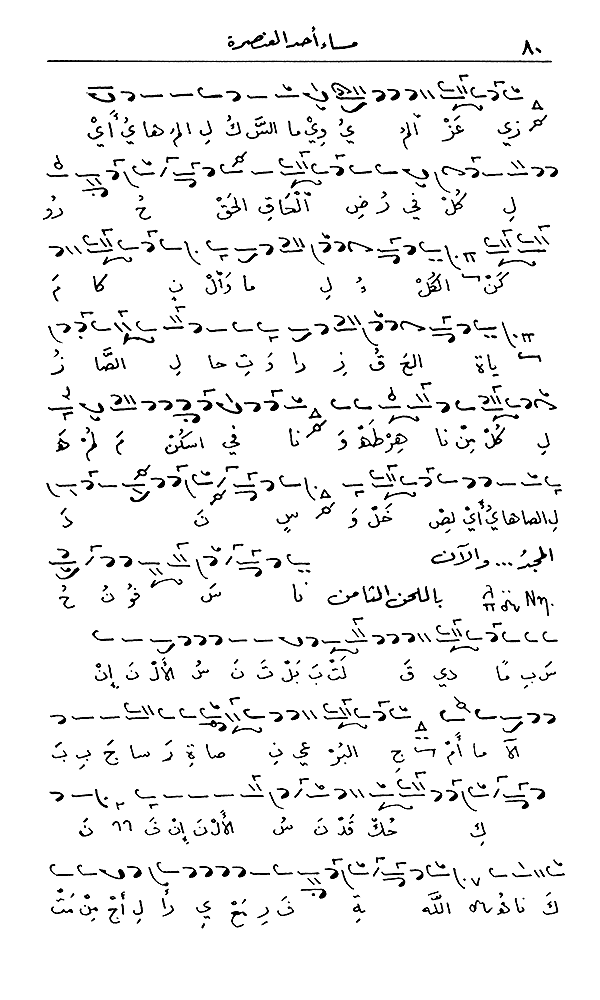 ٨٠ مساء أحد العنصرة
زي عَزْ اَلْمُ يُ وِيْ ما السَّ كُ لِ الْمُ هايُ أَيْ
لِ كُلْ في رُ ضِ اَلْحَاقِ الحَقْ حُ رُو
كَنْ الكُلْ ءُ لِ ما وَالْ نِ كا مَ
ياة الحَ قُ زِ را وَتِ حا لِ الصَّا زُ
لِ كُلْ مِنْ نا هِرْ طَهْ وَ نا في اسكُنْ مَ لُمْ هَ
لِ الصاهايُ أَيْ لِصْ خَلْ وَ سِ نَ دَ
المجدُ ... والآن
باللحن الثامن نا سَ فُو نُ حُ
سَ بِ مًا دي قَ لَتْ بَ بَلْ ثَ نَ سُ الأَلْ نَ إِنْ
الآ ما أَمْ جِ البُرْ عي نِ صاةِ رَ سا جَ بِ بَ
كِ حُكْ قَدْ نَ سُ الأَلْ نَ إِنْ فَ نَ
كَ نا ذُ اللَّه ةِ فَ رِ مَعْ يِ رَا لِ أَجْ مِنْ مَتْ